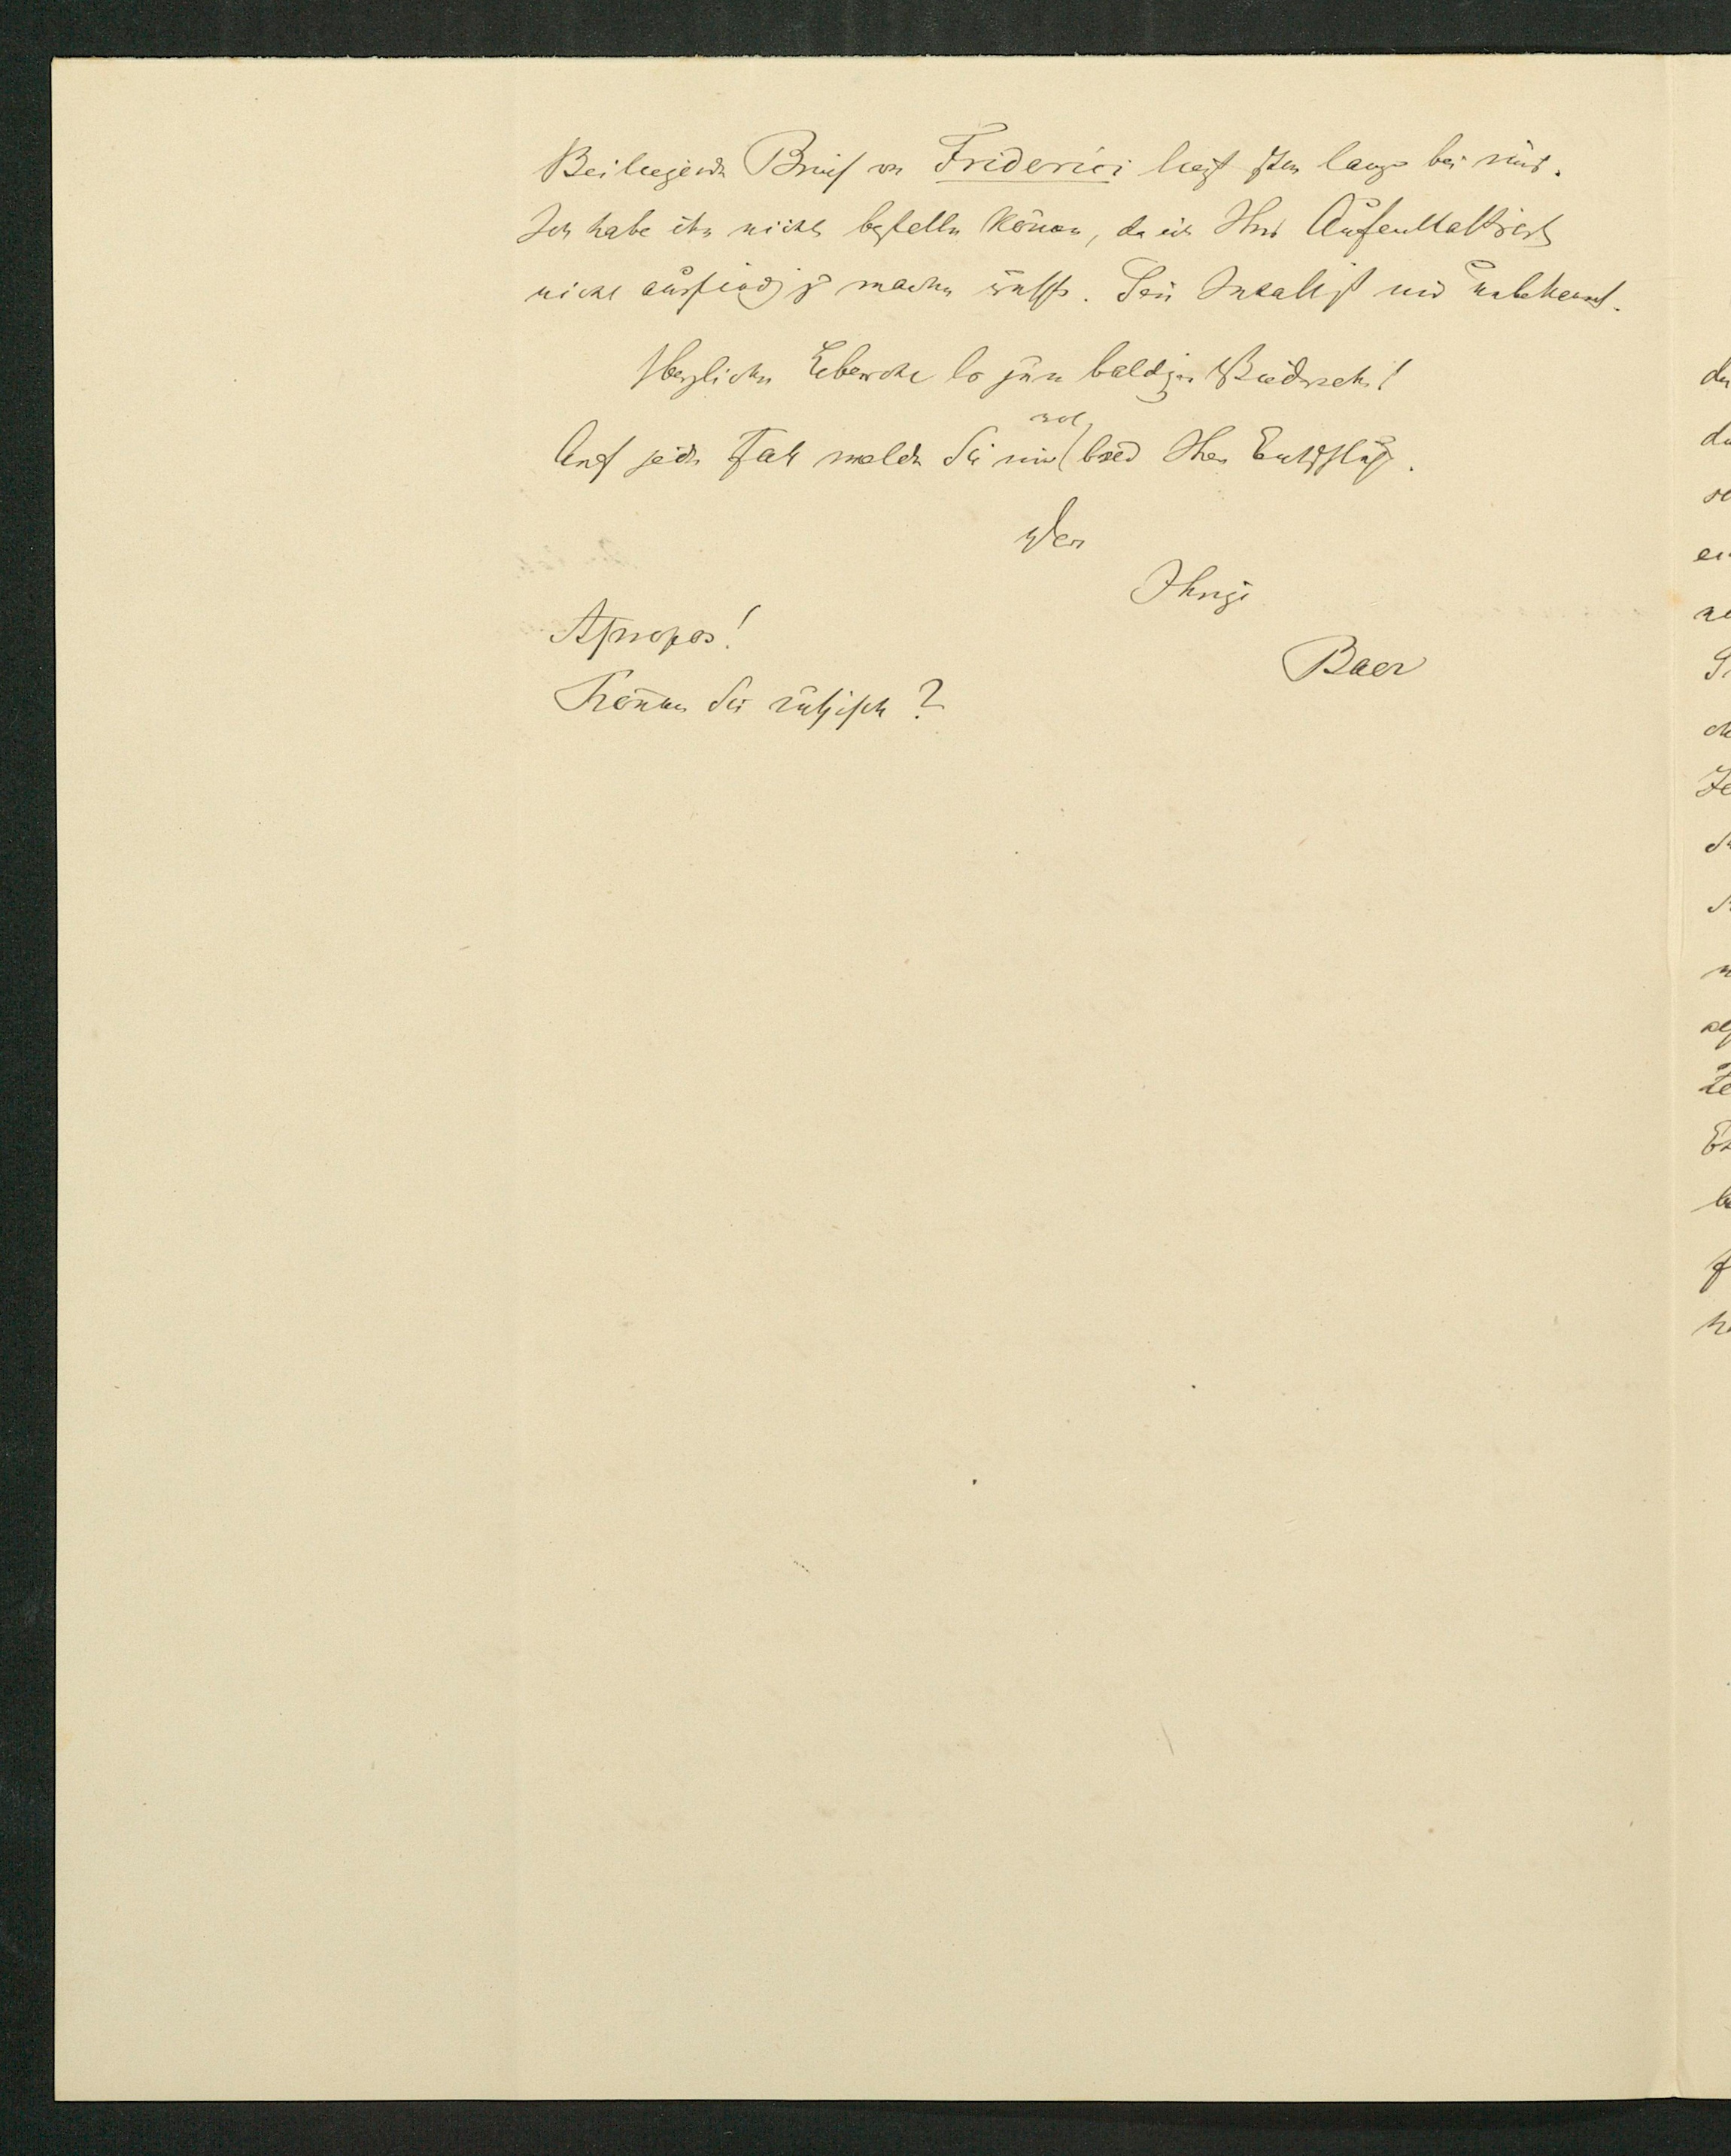 Beiliegender Brief von Friderici liegt schon lange bei mir.
Ich habe ihn nicht bestellen können, da ich Ihren Aufenthaltsort
nicht ausfindig zu machen wußte. Sein Inhalt ist mir unbekannt.
Herzliches Lebewohl bis zum baldigen Wiedersehn!
Auf jeden Fall melden Sie mir wol bald Ihren Entschluß.
Der
Ihrige
Baer
Apropos!
Können Sie rußisch?